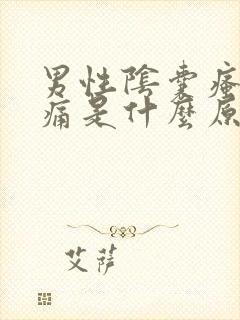 男性陰囊瘙
痛是什麼原
艾薩